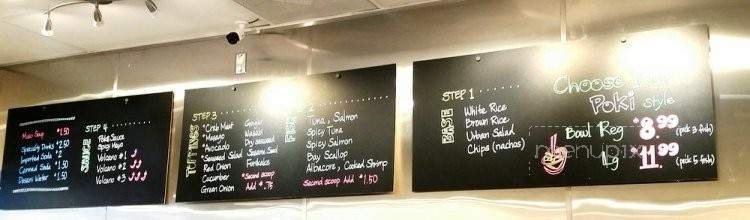 Miso Soup $1.50
Specialty Drinks $2.50
Imported Soda $2
Canned Soda $1.50
Desani Water $1.50
STEP 4
SAUCE
Poke Sauce
Spicy Mayo
Volcano #1
Volcano #2
Volcano #3
STEP 3
TOPPINGS
*Crab Meat
*Masago
*Avocado
*Seaweed Salad
Red Onion
Cucumber
Green Onion
Ginger
Wasabi
Dry seaweed
Sesame Seed
Furikake
*Second scoop
Add $.75
2
Tuna, Salmon
Spicy Tuna
Spicy Salmon
Bay Scallop
Albacore, Cooked Shrimp
Second scoop Add $1.50
STEP 1
BASE
White Rice
Brown Rice
Urban Salad
Chips (nachos)
Choose
Poki style
Bowl Reg $8.99 (pick 3 fish)
Lg 11.99 (pick 5 fish)
menupix